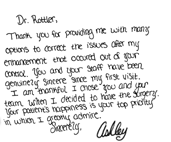 Dr. Rottler,
Thank you for providing me with many
options to correct the issues after my
enhancement that occured out of your
control. You and your staff have been
genuinely sincere since my first visit.
I am thankful I chose you and your
team when I decided to have the surgery.
Your patient's happiness is your top priority
in which I greatly admire.
Sincerely,
Ashley